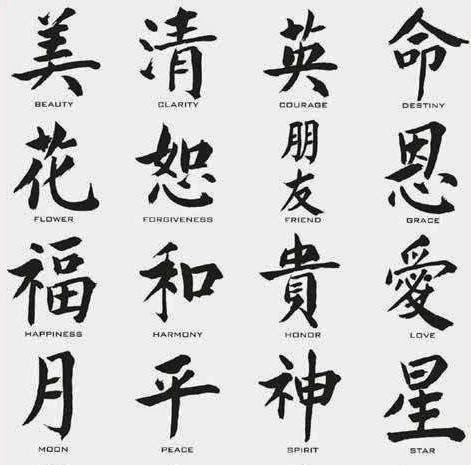 美 清 英 命
BEAUTY CLARITY COURAGE DESTINY
花 恕 朋友 恩
FLOWER FORGIVENESS FRIEND GRACE
福 和 貴 愛
HAPPINESS HARMONY HONOR LOVE
月 平 神 星
MOON PEACE SPIRIT STAR